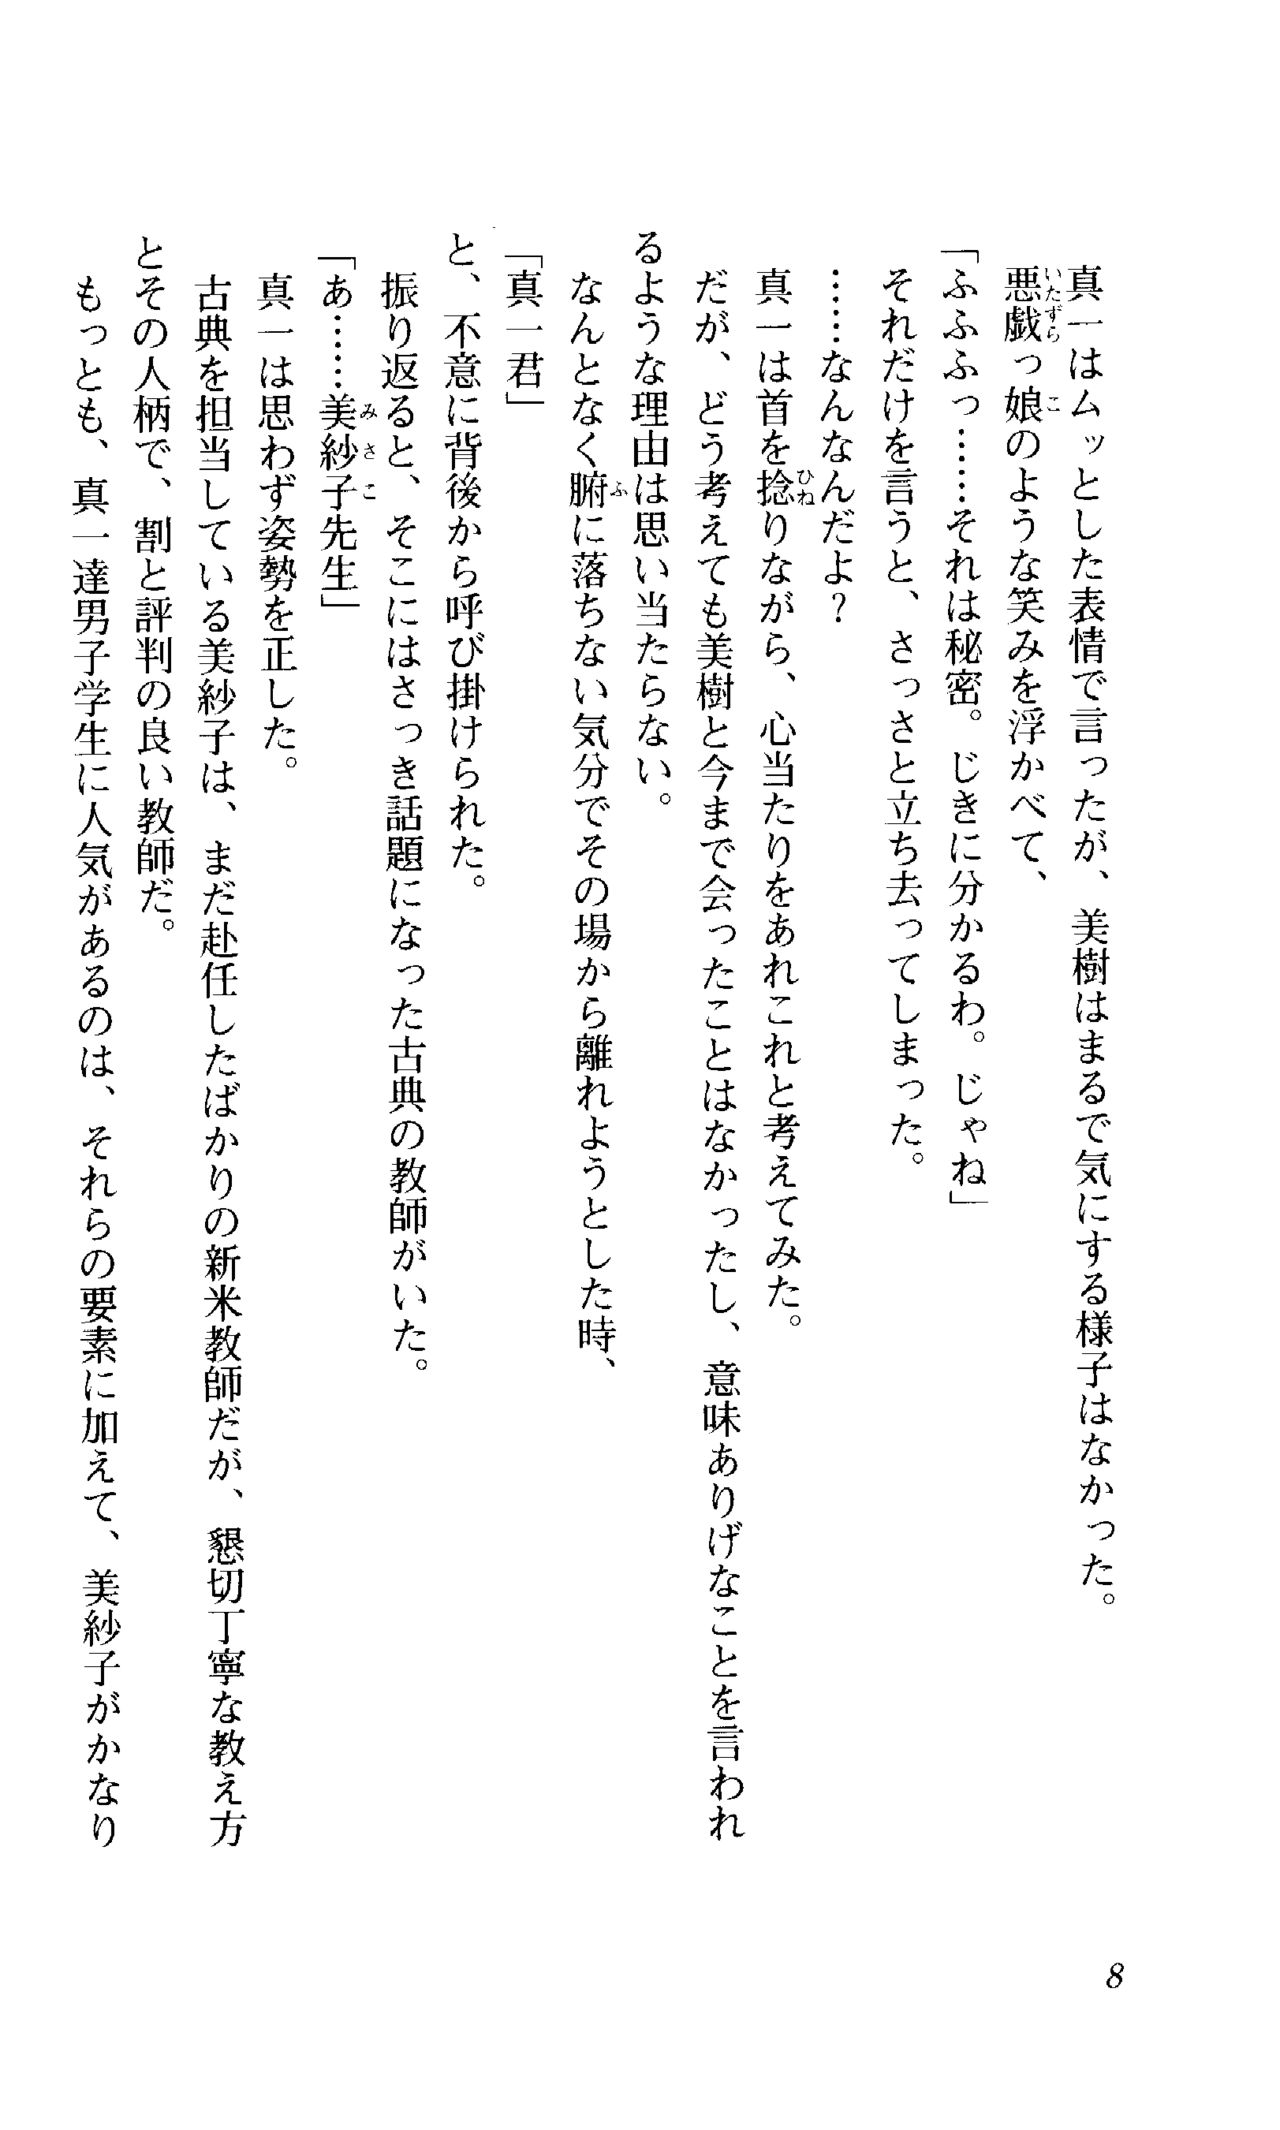 真一はムッとした表情で言ったが、美樹はまるで気にする様子はなかった。
悪戯っ娘のような笑みを浮かべて、
「ふふふっ……それは秘密。じきに分かるわ。じゃね」
それだけを言うと、さっさと立ち去ってしまった。
……なんなんだよ？
真一は首を捻りながら、心当たりをあれこれと考えてみた。
だが、どう考えても美樹と今まで会ったことはなかったし、意味ありげなことを言われ
るような理由は思い当たらない。
なんとなく腑に落ちない気分でその場から離れようとした時、
「真一君」
と、不意に背後から呼び掛けられた。
振り返ると、そこにはさっき話題になった古典の教師がいた。
「あ……美紗子先生」
真一は思わず姿勢を正した。
古典を担当している美紗子は、まだ赴任したばかりの新米教師だが、懇切丁寧な教え方
とその人柄で、割と評判の良い教師だ。
もっとも、真一達男子学生に人気があるのは、それらの要素に加えて、美紗子がかなり
8